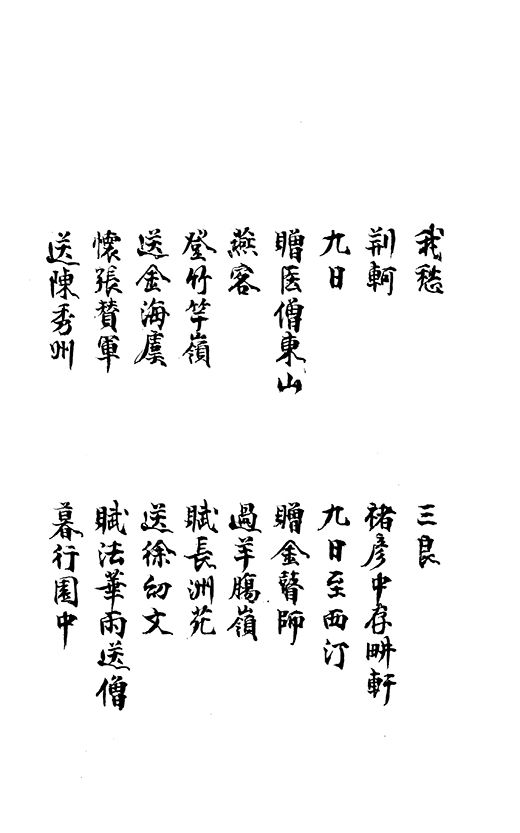 我愁
三良
荆軻
褚彥中存畊軒
九日
九日至西汀
贈医僧東山
贈金瞽師
燕客
過羊腸嶺
登竹竿嶺
賦長洲苑
送金海虞
送徐幼文
懷張贊軍
賦法華雨送僧
送陳秀州
暮行園中